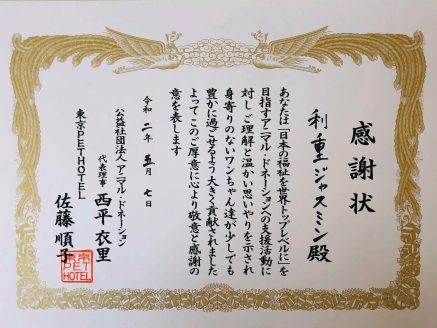 感謝状
利重ジャスミン殿
あなたは「日本の福祉を世界トップレベルに」を
目指すアニマル・ドネーションへの支援活動に
対しご理解と温かい思いやりを示され
身寄りのないワンちゃん達が少しでも
豊かに過ごせるよう大きく貢献されました
よってこのご厚意に心より敬意と感謝の
意を表します
令和二年五月七日
公益社団法人アニマル・ドネーション
代表理事 西平衣里
東京PETHOTEL
佐藤順子
東京
PET
HOTEL